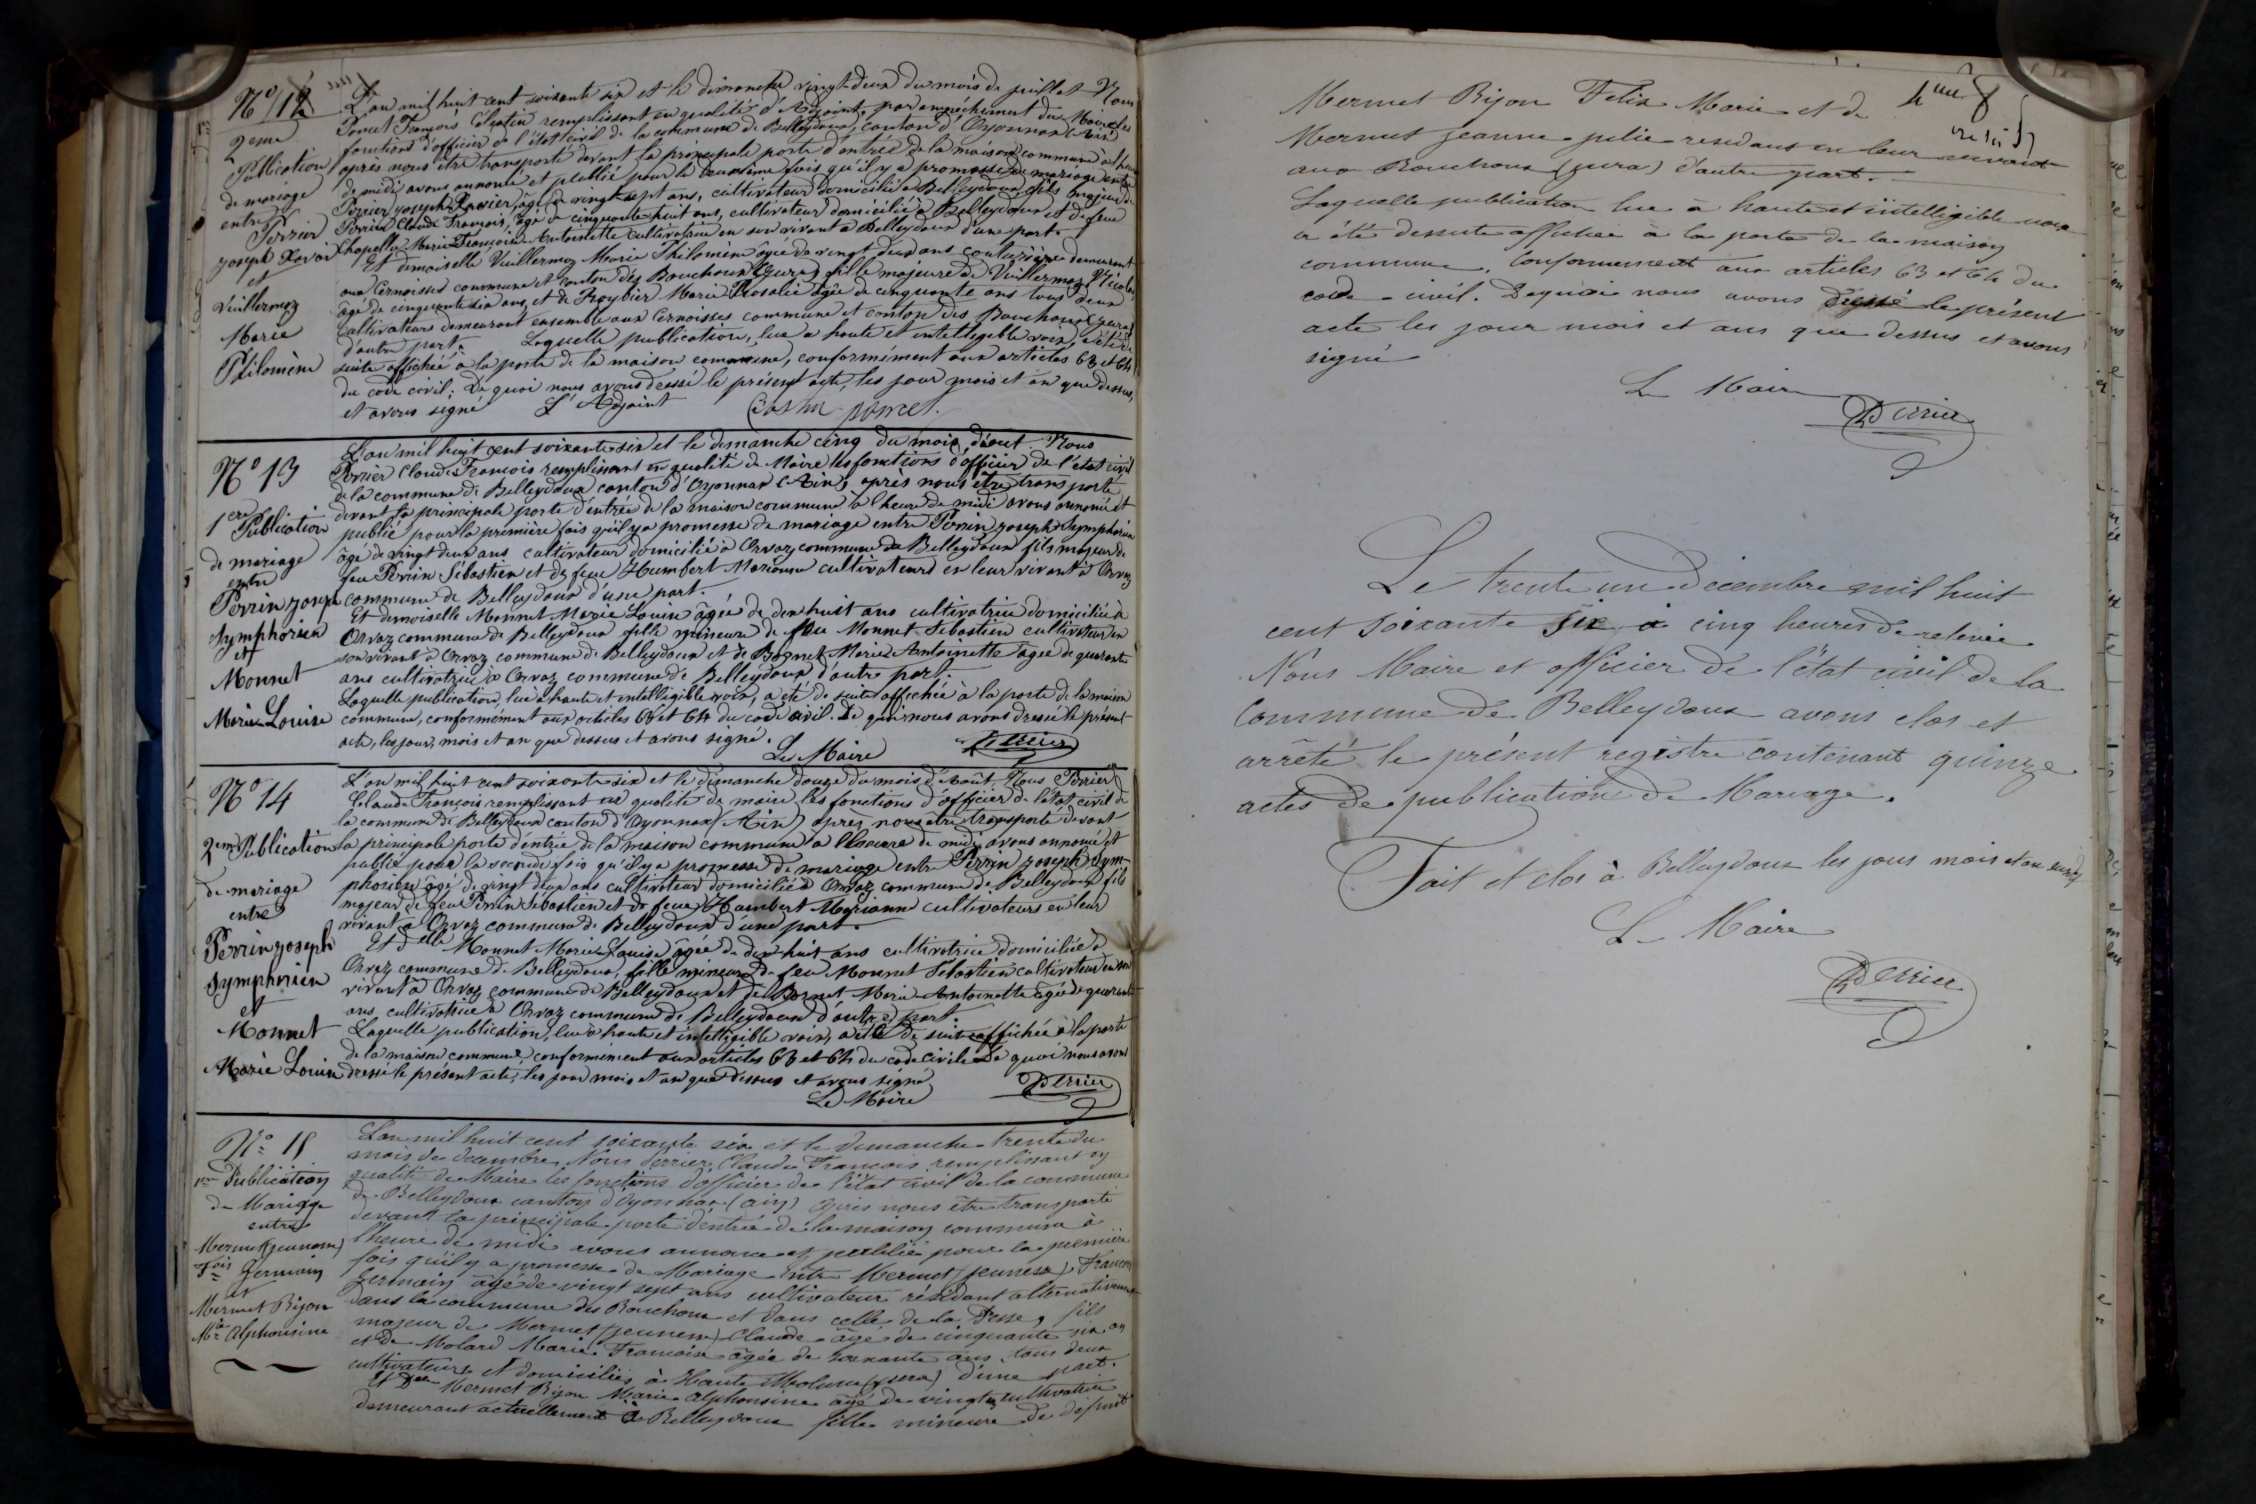 N° 12
2eme
Publication
de mariage
entre
Perrier
joseph Xavier
et
Vuillermoz
Marie
Philomène
L'an mil huit cent soixante six et le dimanche vingt-deux du mois de juillet Nous
Poncet François Célestin remplissant en qualité d'Adjoint, par empêchement du Maire les
fonctions d'officier de l'état civil de la commune de Belleydoux, canton d'Oyonnax (Ain)
après nous être transporté devant la principale porte d'entrée de la maison commune à l'heure
de midi avons annoncé et publié pour la deuxième fois qu'il y a promesse de mariage entre
Perrier joseph Xavier, âgé de vingt sept ans, cultivateur domicilié à Belleydoux, fils majeur de
Perrier Claude François, âgé de cinquante huit ans, cultivateur domicilié à Belleydoux et de feue
Chapelle Marie Françoise Antoinette cultivatrice en son vivant à Belleydoux d'une part.
Et demoiselle Vuillermoz Marie Philomène âgée de vingt deux ans couturière demeurant
aux Cernoises commune et canton des Bouchoux (Jura) fille majeure de Vuillermoz Nicolas
âgé de cinquante six ans, et de Marie Rosalie âgée de cinquante ans tous deux
cultivateurs demeurant ensemble aux Cernoises commune et canton des Bouchoux (jura)
d'autre part. Laquelle publication, lue à haute et intelligible voix, a été de
suite affichée à la porte de la maison commune, conformément aux articles 63 et 64
du code civil; De quoi nous avons dessé le présent acte, les jour mois et an que dessus,
et avons signé L'Adjoint poncet
N° 13
1ere Publication
de mariage
entre
Perrin joseph
Symphorien
et
Monnet
Marie Louise
L'an mil huit cent soixante six et le dimanche cinq du mois d'août. Nous
Perrier Claude François remplissant en qualité de Maire les fonctions d'officier de l'état civil
de la commune de Belleydoux canton d'Oyonnax (Ain), après nous être transporté
devant la principale porte d'entrée de la maison commune à l'heure de midi avons annoncé et
publié pour la première fois qu'il y a promesse de mariage entre Perrin joseph Symphorien
âgé de vingt deux ans cultivateur domicilié à Orvaz commune de Belleydoux fils majeur de
feu Perrin Sébastien et de feue Humbert Marianne cultivateurs en leur vivant à Orvaz
commune de Belleydoux d'une part.
Et demoiselle Monnet Marie Louise âgée de dix huit ans cultivatrice domiciliée à
Orvaz commune de Belleydoux fille mineure de feu Monnet Sébastien cultivateur en
son vivant à Orvaz commune de Belleydoux et de Marie Antoinette âgée de quarante
ans cultivatrice à Orvaz commune de Belleydoux d'autre part.
Laquelle publication, lue à haute et intelligible voix, a été de suite affichée à la porte de la maison
commune, conformément aux articles 63 et 64 du code civil. De quoi nous avons dressé le présent
acte, les jour, mois et an que dessus et avons signé.
Le Maire Perrier
N° 14
2eme Publication
de mariage
entre
Perrin joseph
Symphorien
et
Monnet
Marie Louise
L'an mil huit cent soixante six et le dimanche douze du mois d'Août. Nous Perrier
Claude François remplissant en qualité de maire les fonctions d'officier de l'état civil de
la commune de Belleydoux canton d'Oyonnax (Ain) après nous être transporté devant
la principale porte d'entrée de la maison commune à l'heure de midi avons annoncé et
publié pour la seconde fois qu'il y a promesse de mariage entre Perrin joseph Sym-
phorien âgé de vingt deux ans cultivateur domicilié à Orvaz commune de Belleydoux fils
majeur de feu Perrin Sébastien et de feue Humbert Marianne cultivateurs en leur
vivant à Orvaz commune de Belleydoux d'une part.
Et delle Monnet Marie Louise âgée de dix huit ans cultivatrice domiciliée à
Orvaz commune de Belleydoux, fille mineure de feu Monnet Sébastien cultivateur en son
vivant à Orvaz commune de Belleydoux et de Marie Antoinette âgée de quarante
ans cultivatrice à Orvaz commune de Belleydoux d'autre part.
Laquelle publication, lue à haute et intelligible voix, a été de suite affichée à la porte
de la maison commune, conformément aux articles 63 et 64 du code civil. De quoi nous avons
dressé le présent acte, les jour mois et an que dessus et avons signé
Le Maire Perrier
N° 15
1ere Publication
de Mariage
entre
Mermet (jeunesse)
Fois Germain
et
Mermet Bijon
Mie Alphonsine
L'an mil huit cent soixante six et le dimanche trente du
mois de decembre Nous Perrier Claude François remplissant en
qualité de Maire les fonctions d'officier de l'état civil de la commune
de Belleydoux canton d'Oyonnax (ain) après nous être transporté
devant la principale porte d'entrée de la maison commune à
l'heure de midi avons annoncé et publiée pour la première
fois qu'il y a promesse de Mariage entre Mermet (jeunesse) François
Germain âgé de vingt sept ans cultivateur résidant alternativement
dans la commune des Bouchoux et dans celle de la Pesse, fils
majeur de Mermet (jeunesse) Claude âgé de cinquante six ans
et de Molard Marie Françoise âgée de soixante ans, tous deux
cultivateurs et domiciliés à Haute Molune (jura) d'une part.
Et Delle Mermet Bijon Marie Alphonsine âgé de vingt cultivatrice
demeurant actuellement à Belleydoux fille mineure de défunt
Mermet Bijon Felix Marie et de
Mermet jeanne julie residants en leur vivant
aux Bouchoux (jura) d'autre part.
Laquelle publication lue à haute et intelligible voix
a été dessuite affichée à la porte de la maison
commune, Conformement aux articles 63 et 64 du
code civil. Dequoi nous avons dressé le présent
acte les jour mois et ans que dessus et avons
signé
Le Maire
Perrier
Le trente un decembre mil huit
cent soixante six à cinq heures de relevée
Nous Maire et officier de l'état civil de la
Commune de Belleydoux avons clos et
arrêté le présent registre contenant quinze
actes de publication de Mariage.
Fait et clos à Belleydoux les jour mois et an susdit
Le Maire
Perrier